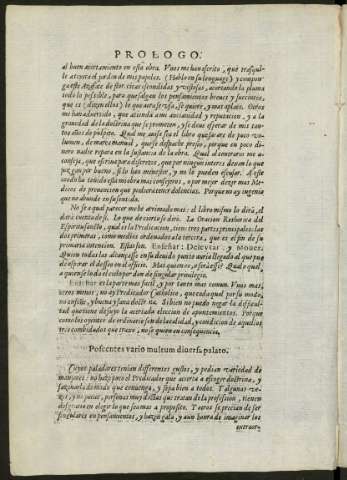 PROLOGO.
al buen acertamiento en esta obra. Vnos me han escrito, que trasquile
el jardin de mis papeles. (Hablo en su lenguage) y compon-
flor, vistas escondidas y vistosas, acortando la pluma
todo lo possible, para que salgan los pensamientos breues y succintos,
que es (dizen ellos) lo que aora se vsa, se quiere, y mas aplaze. Otros
me han aduertido, que atienda a mi ancianidad y reputacion, y a la
grauedad de la doctrina que se prometen, y se deue esperar de mis tan-
tos años de pulpito. Qual me auisa sea el libro que sacare de poco vo-
lumen, de marca manual, que se despache presto, porque en poco di-
nero nadie repara en la sustancia de la obra. Qual al contrario me a-
conseja, que escriua para discretos, que por ningun interes dexan lo que
juzgan por bueno, si lo han menester, y no lo pueden escusar. A este
modo ha tenido esta mi obra mas consegeros, o por mejor dezir mas Me-
dicos de prouancon que pudiera tener dolencias. Porque no ay ingenio
que no abunde en su sentido.
No se a qual parecer me he arrimado mas: el libro mismo lo dirà, el
darà cuenta de si. Lo que de cierto se dirà. La Oracion Rethorica del
Espiritusanto, qual es la Predicacion, tiene tres partes principales: las
dos primeras, como medios ordenados a la tercera, que es el fin de su
primaria intencion. Estas son. Enseñar: Deleytar, y Mouer.
Quien todas las alcançasse en su deuido punto auria llegado al que pue-
de esperar el desseo en el officio. Mas quien es, aser assi? Qual o qual,
a quien se lo dà el cielo por don de singular priuilegio.
Enseñar es la parte mas facil, y por tanto mas comun. Unos mas,
otros menos, no ay Predicador Catholico, que cada qual por su modo,
no enseñe, y buena y sana dotrina. Si bien no puedo negar la dificul-
tad que tiene dessto la acertada eleccion de apuntamientos. Porque
como los oyentes de ordinario son de la calidad, y condicion de aquellos
tres combidados que traxo, no se quien en consequencia.
Poscentes vario multum diuersa palato.
Cuyos paladares tenian differentes gustos, y pedian variedad de
manjares: no haze poco el Predicador que acierta a escoger doctrina, y
sazonarla de modo que conuenga, y sepa bien a todos. Y algunas ve-
zes, y no pocas, personas muy doctas que tratan desta profession, tienen
desgracia en elegir lo que seamos a proposito. Y otros se precian de ser
singulares en pensamientos, y hazen gala, y aun honra de imaginar los
extraor-